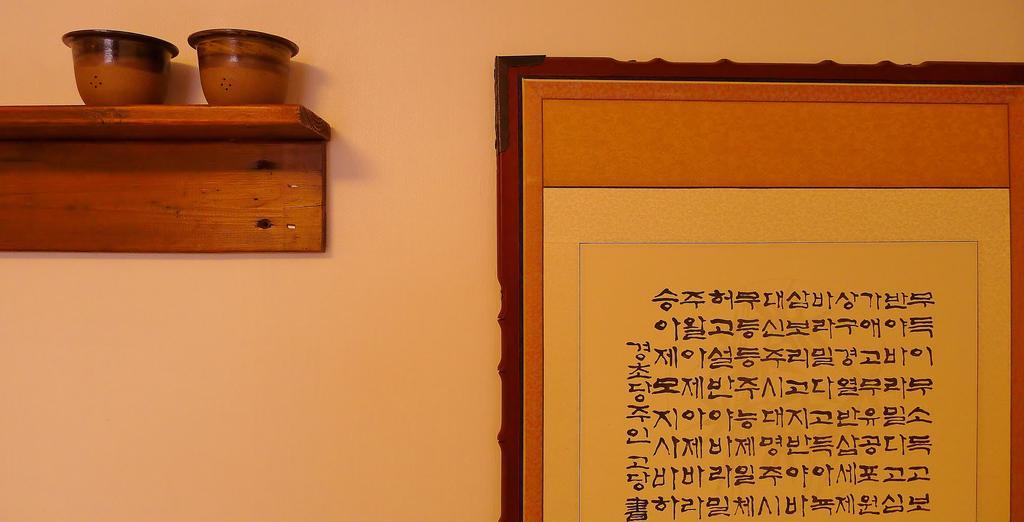 무득이무소득고보
반야바라밀다고심
가애고무유공포원
상구경열반삼세제
바라밀다고득아녹
삼보리고지반야바
대신주시대명주시
무등등주능제일체
허고설반야바라밀
주왈아제아제바라
승아제모지사바하
경초당주인고당書